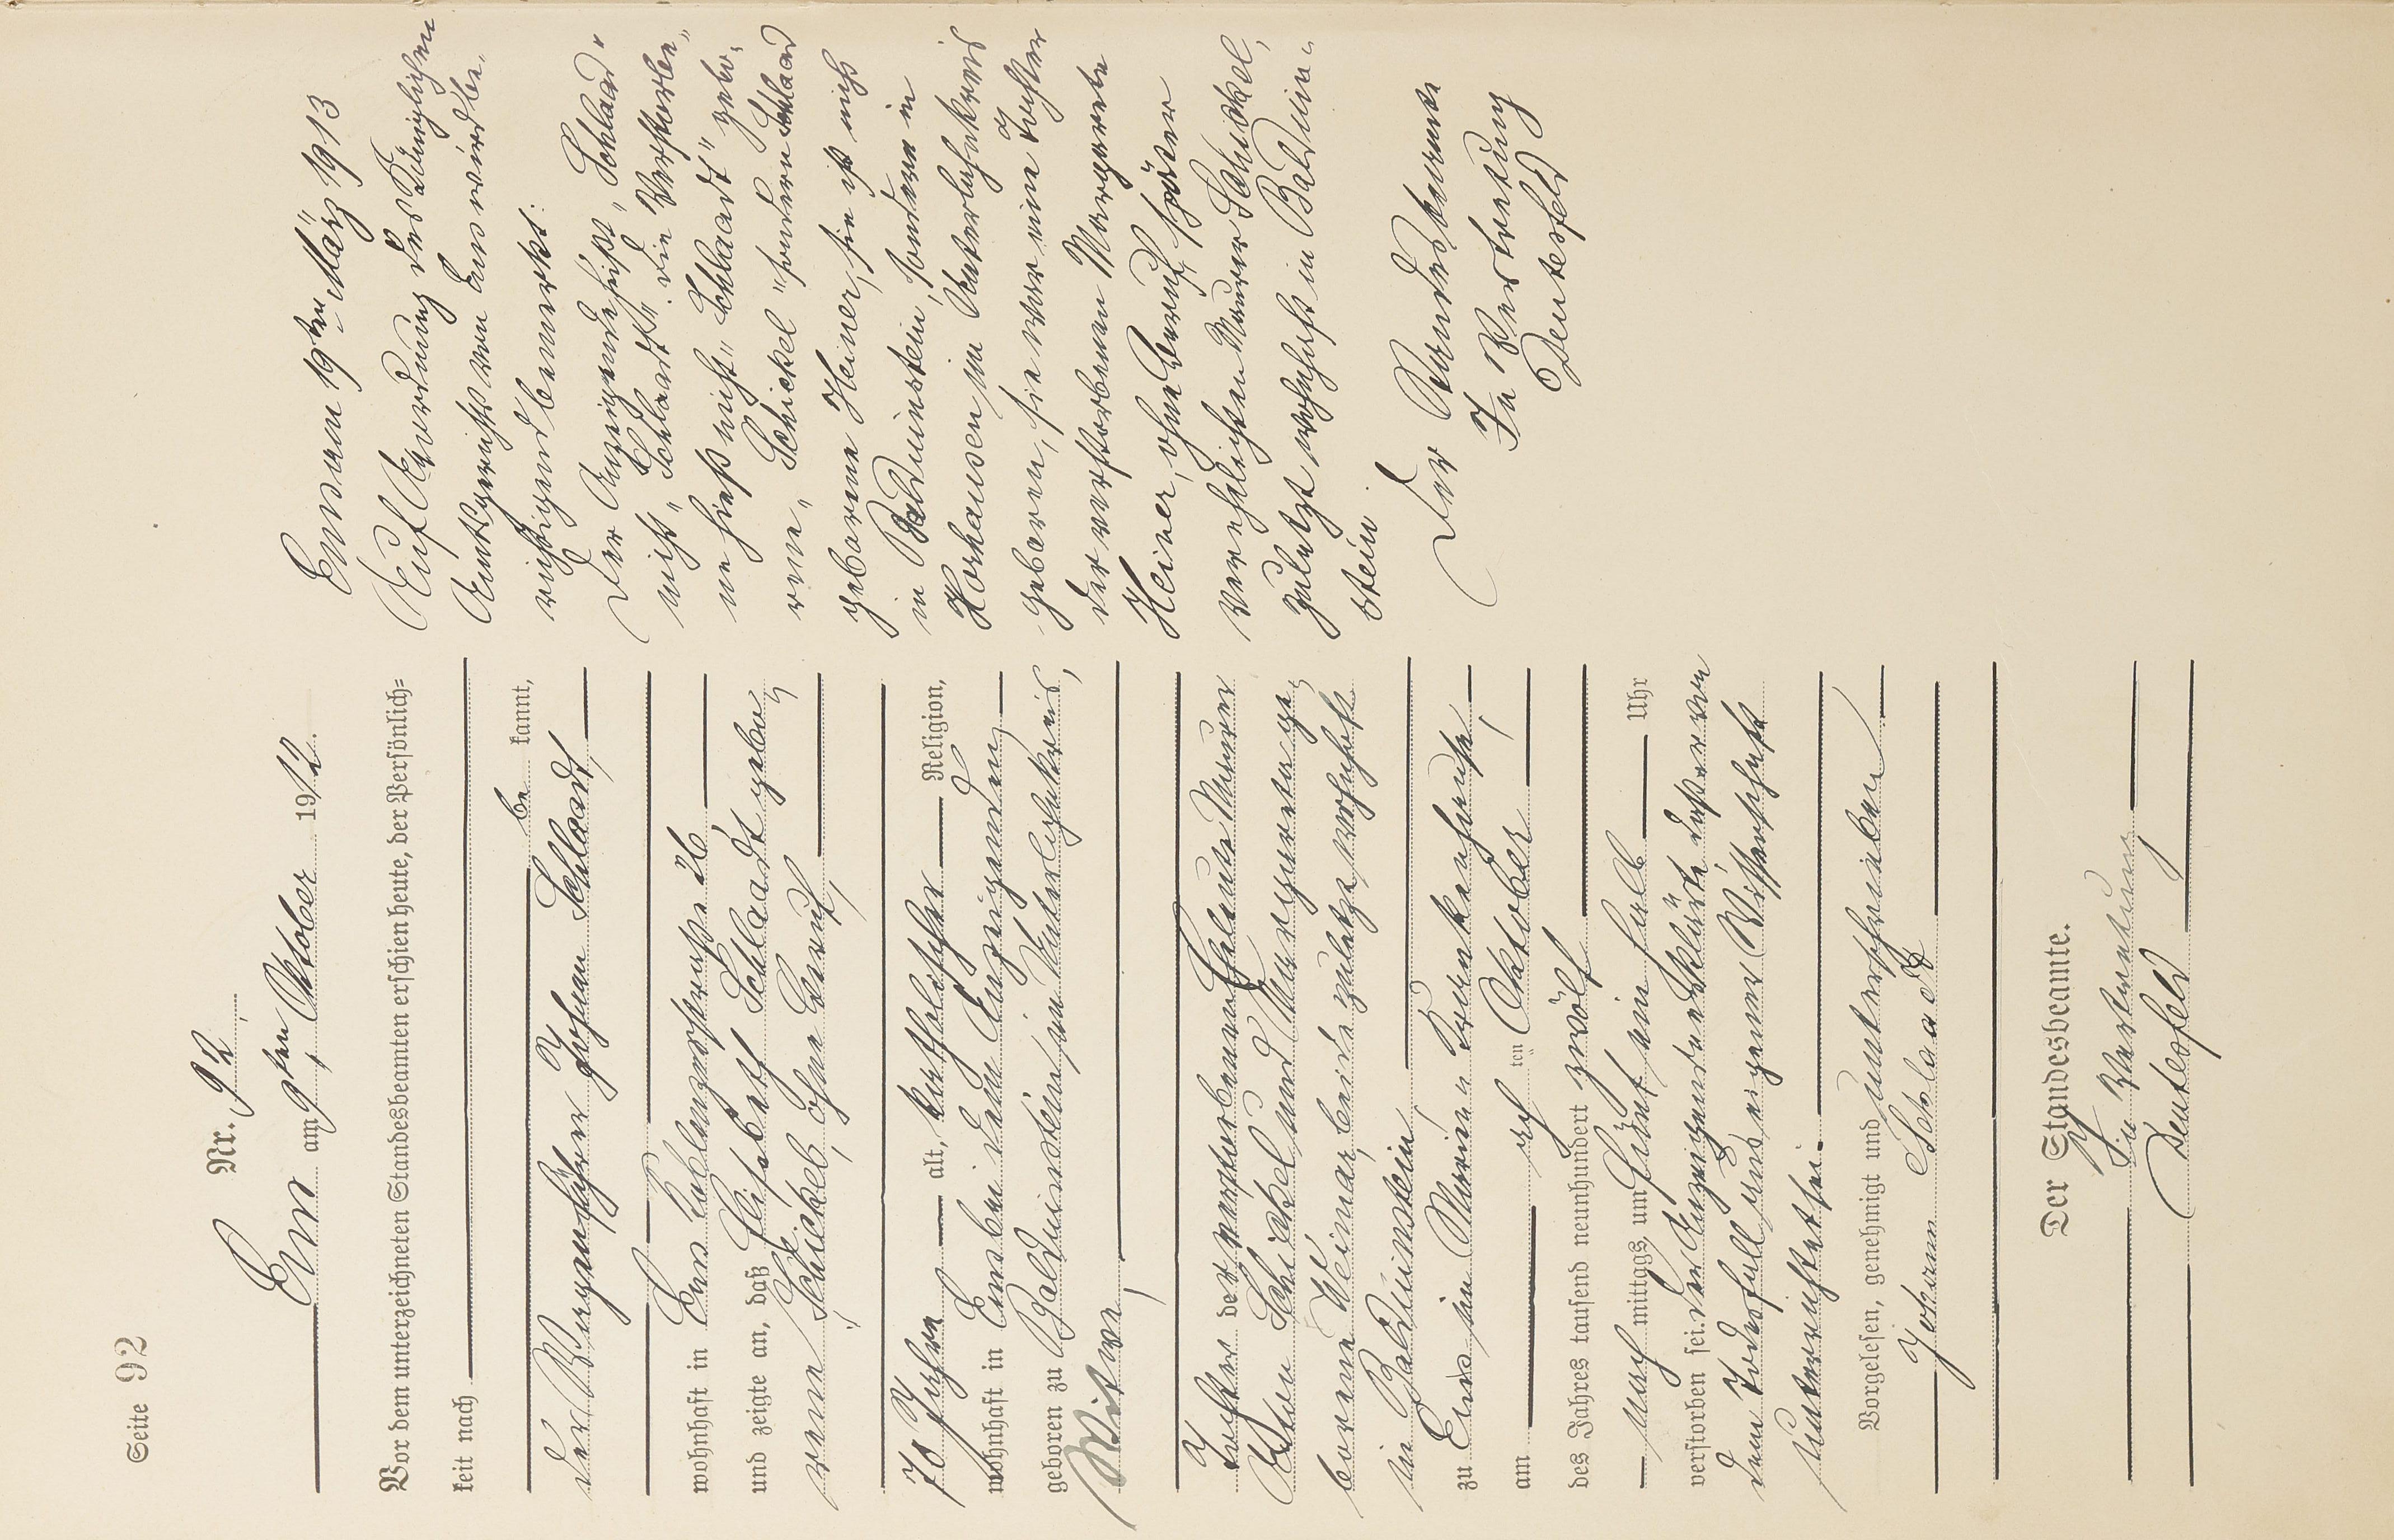 Seite 92
Nr. 92.
Ems am 9ten Oktober 1912.
Vor dem unterzeichneten Standesbeamten erschien heute, der Persönlich=
keit nach
be kannt,
der Johann Schlaadt,
wohnhaft in Ems, Coblenzerstraße 26
und zeigte an, daß Elisabeth Schlaadt gebo„
rene Schickel, ohne Beruf,
70 Jahre alt, katholischer Religion,
wohnhaft in Ems bei dem Anzeigenden,
geboren zu Balduinstein im Unterlahnkreis,
Witwe,
Tochter der verstorbenen Eheleute Maurer
Anton Schickel und Margareta ge„
borene Weimar, beide zuletzt wohnhaft
in Balduinstein,
zu Ems im Marien„Krankenhause,
am acht ten Oktober
des Jahres tausend neunhundert zwölf
nach mittags um fünf ein halb Uhr
verstorben sei. Der Anzeigende erklärte daß er von
dem Todesfall aus eigener Wissenschaft
unterrichtet sei.
Vorgelesen, genehmigt und unterschrieben
Johann Schlaadt
Der Standesbeamte.
In Vertretung
Deutesfeld
Ems am 19ten März 1913
Auf Anordnung des Königlichen
Amtsgerichts von Ems wird be„
richtigend bemerkt:
Der Anzeigende heißt „Schlaad"
nicht „Schlaadt". die Verstorbe„
ne hieß nicht „Schlaadt" gebo„
rene „Schickel" sondern Schlaad
geborene Heiner, sie ist nicht
in Balduinstein, sondern in
Horhausen im Unterlahnkreis
geboren, sie war eine Tochter
der verstorbenen Margarete
Heiner, ohne Beruf, später
verehelichten Maurer Schickel,
zuletzt wohnhaft in Balduin„
stein.
Der Standesbeamte
In Vertretung
Deutesfeld